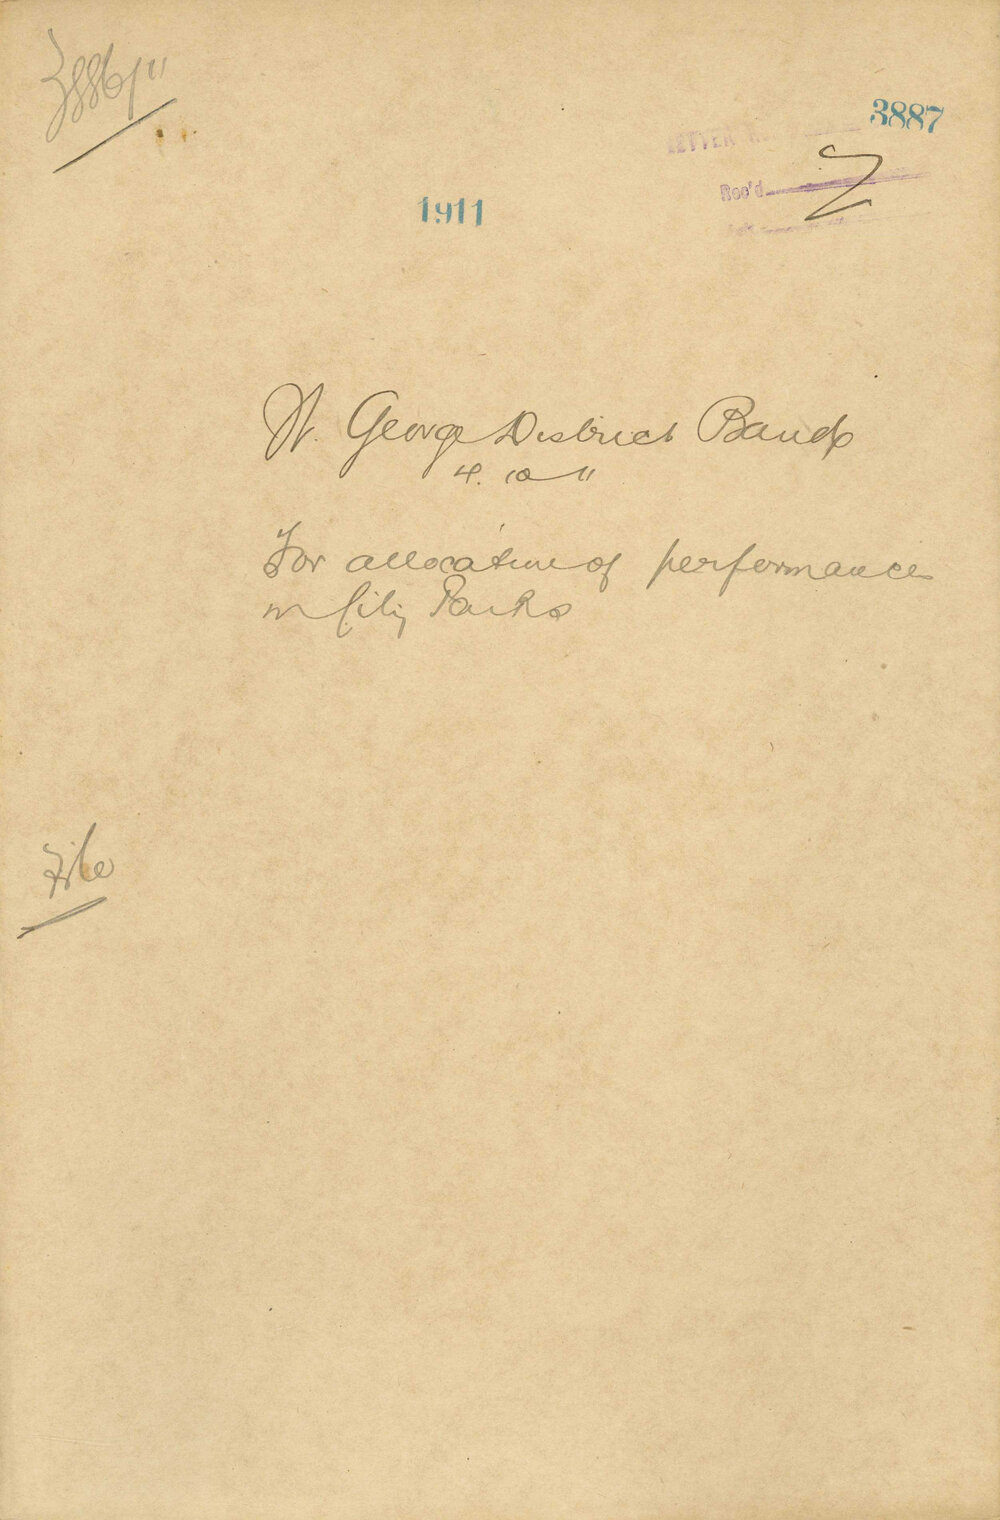 3886/11
3887
LETTER
Rec'd
1911
St. George District Band
4. 10 11
For allocation of performances
in City Parks
File